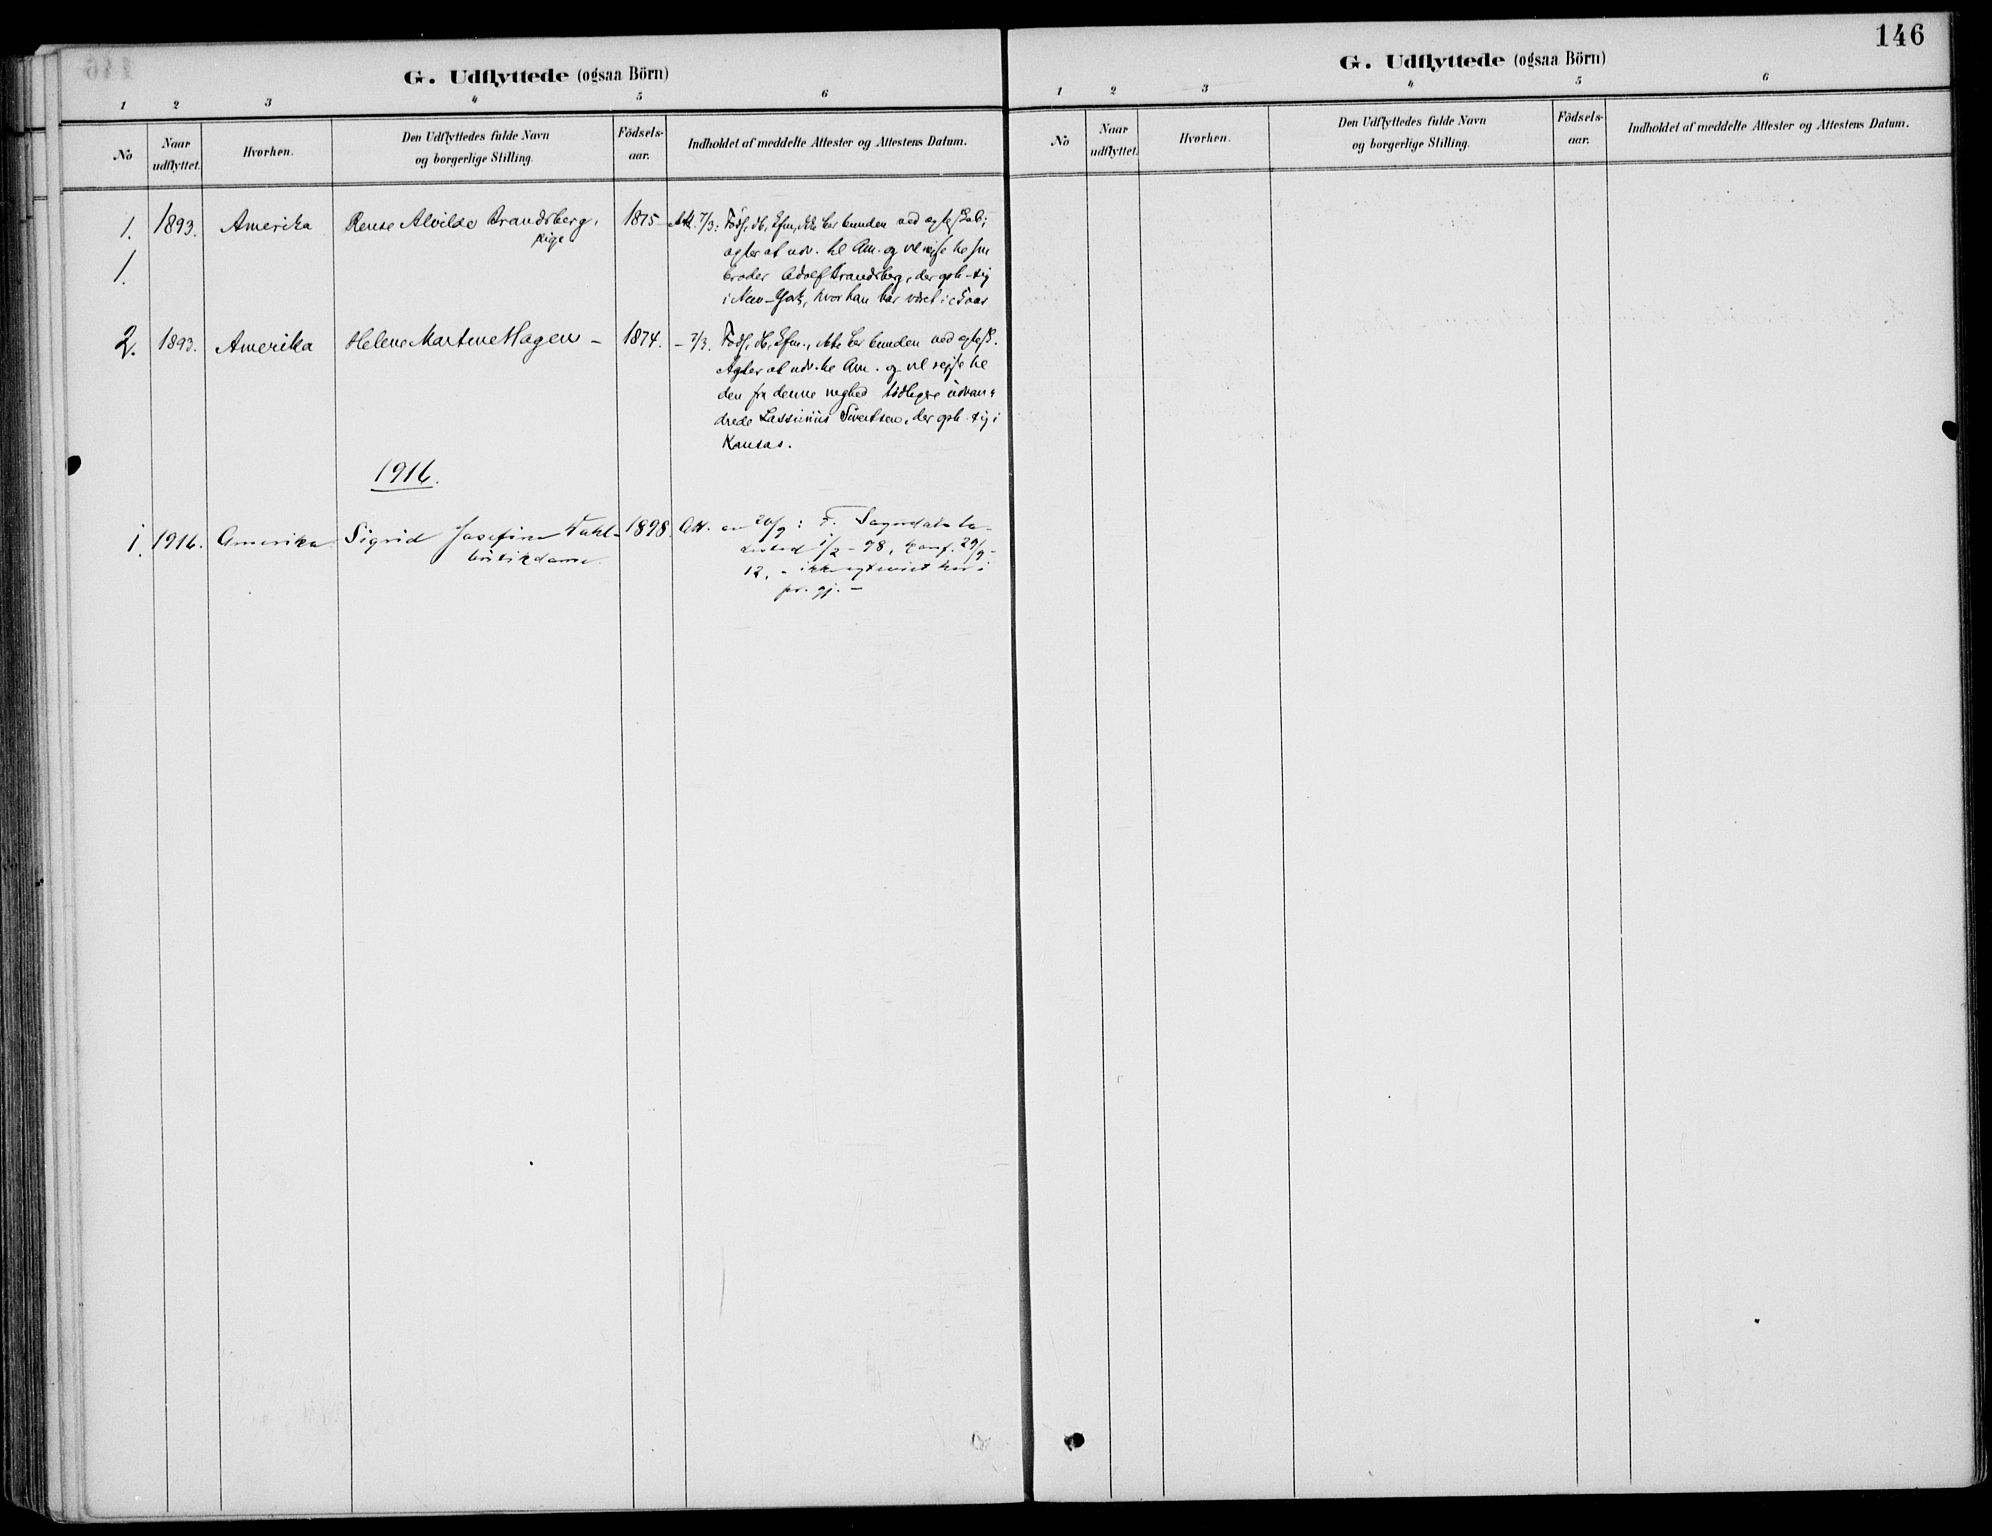 146
G. Udflyttede (ogsaa Börn)
1 2 3 4 5 6
No
Naar udflyttet.
Hvorhen.
Den Udflyttedes fulde Navn
og borgerlige Stilling.
Födsels-
aar.
Indholdet af meddelte Attester og Attestens Datum.
1. 1893. Amerika Alvilde Brandsberg, 1875 Att. 7/3: Föds, db, Kfm, ikke her bunden ved egteskab;
pige
1.
agter at udv. til Am. og vil rejse til sin
broder Adolf Brandsberg, der oph. sig
i New-York, hvor han har været i
2. 1893. Amerika Helene Martine Hagen – 1874. – 7/3. Föds, db, Kfm., ikke her bunden ved egtesk.
Agter at udv. til Am. og vil rejse til
den fra denne meghed tidligere udvan-
drede Sivertsen, der oph. sig i
Kansas.
1916.
1. 1916. Amerika Sigrid Josefine Dahl– 1898. Att. av 20/9: F.
butikdame.
1/2–98, konf. 29/9–
12, – ikke her i
pr. gj. –
G. Udflyttede (ogsaa Börn)
1 2 3 4 5 6
No
Naar
udflyttet.
Hvorhen.
Den Udflyttedes fulde Navn
og borgerlige Stilling.
Födsels-
aar.
Indholdet af meddelte Attester og Attestens Datum.